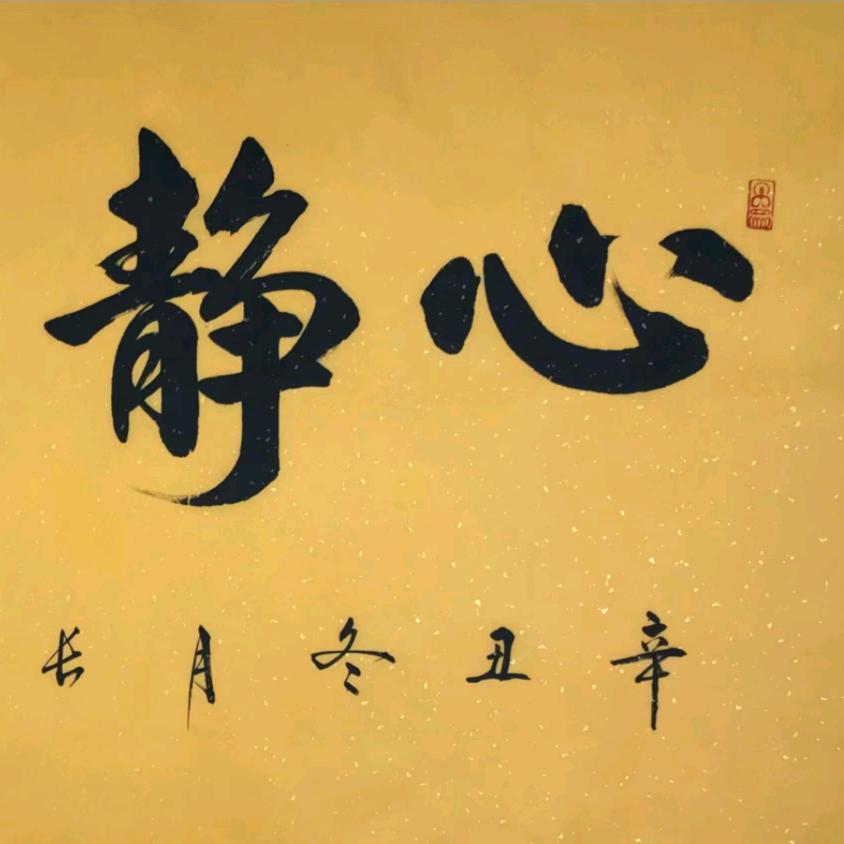 心静
辛丑冬月长